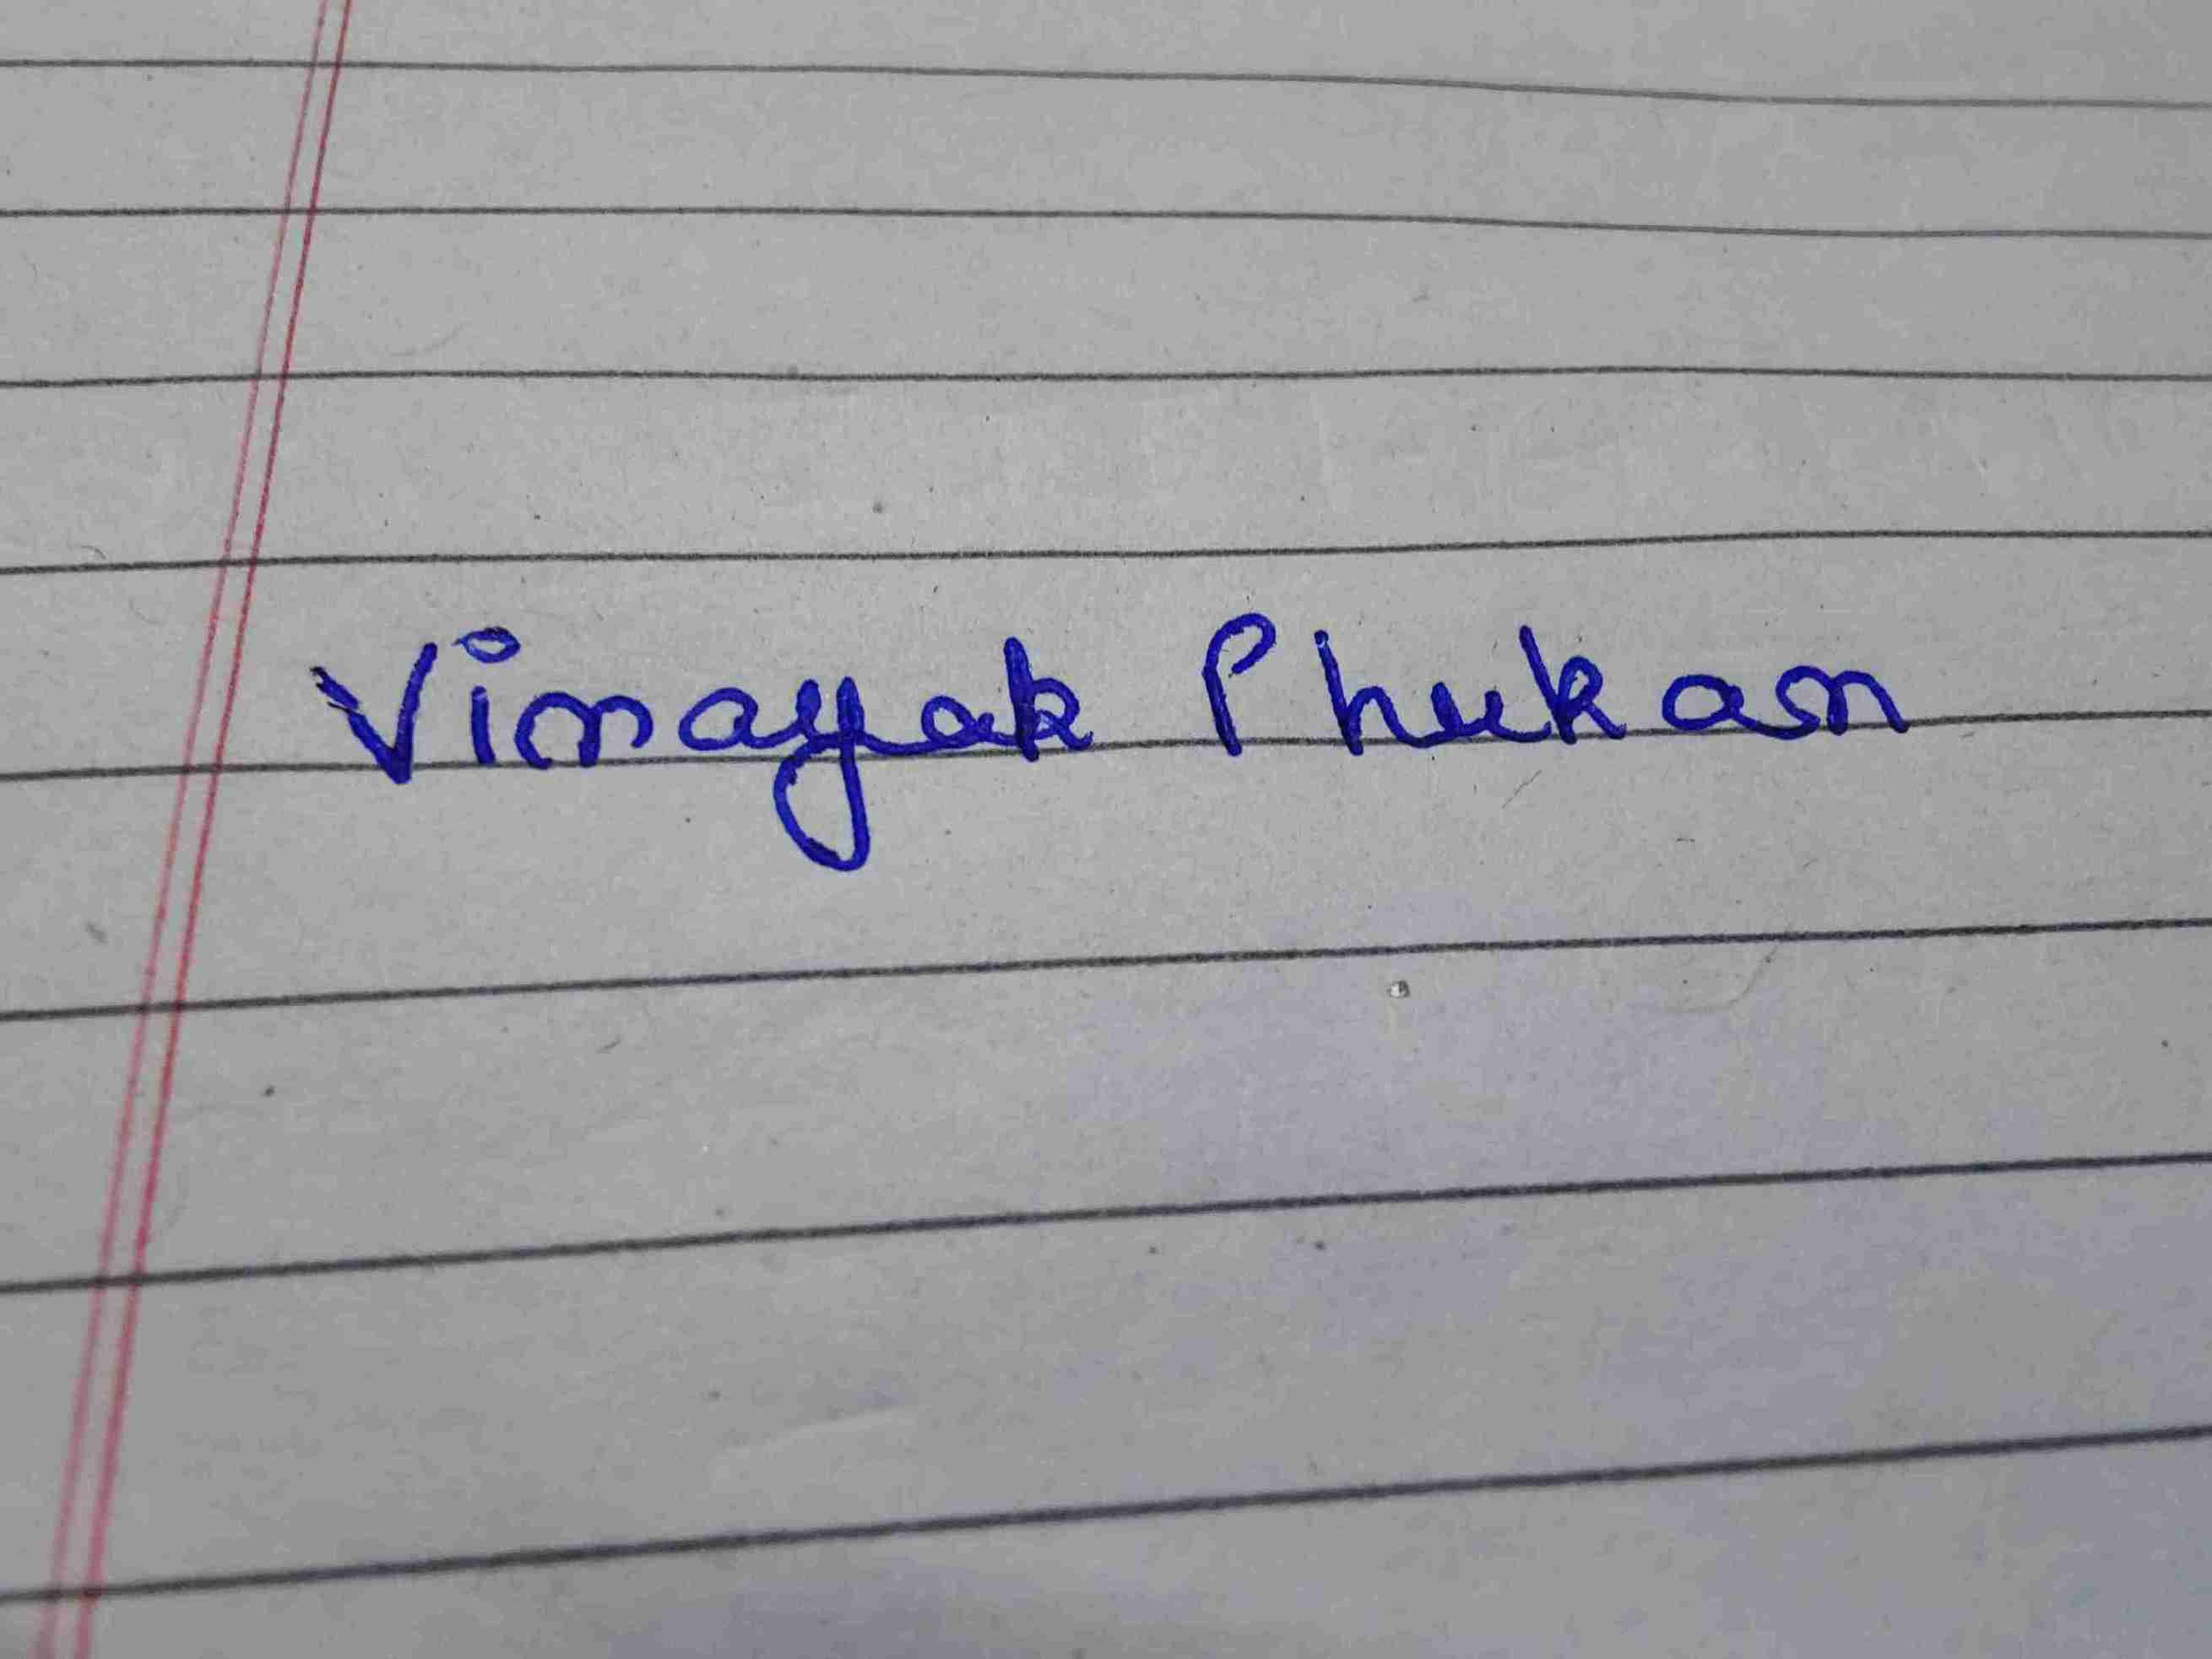 Vinayak Phukan